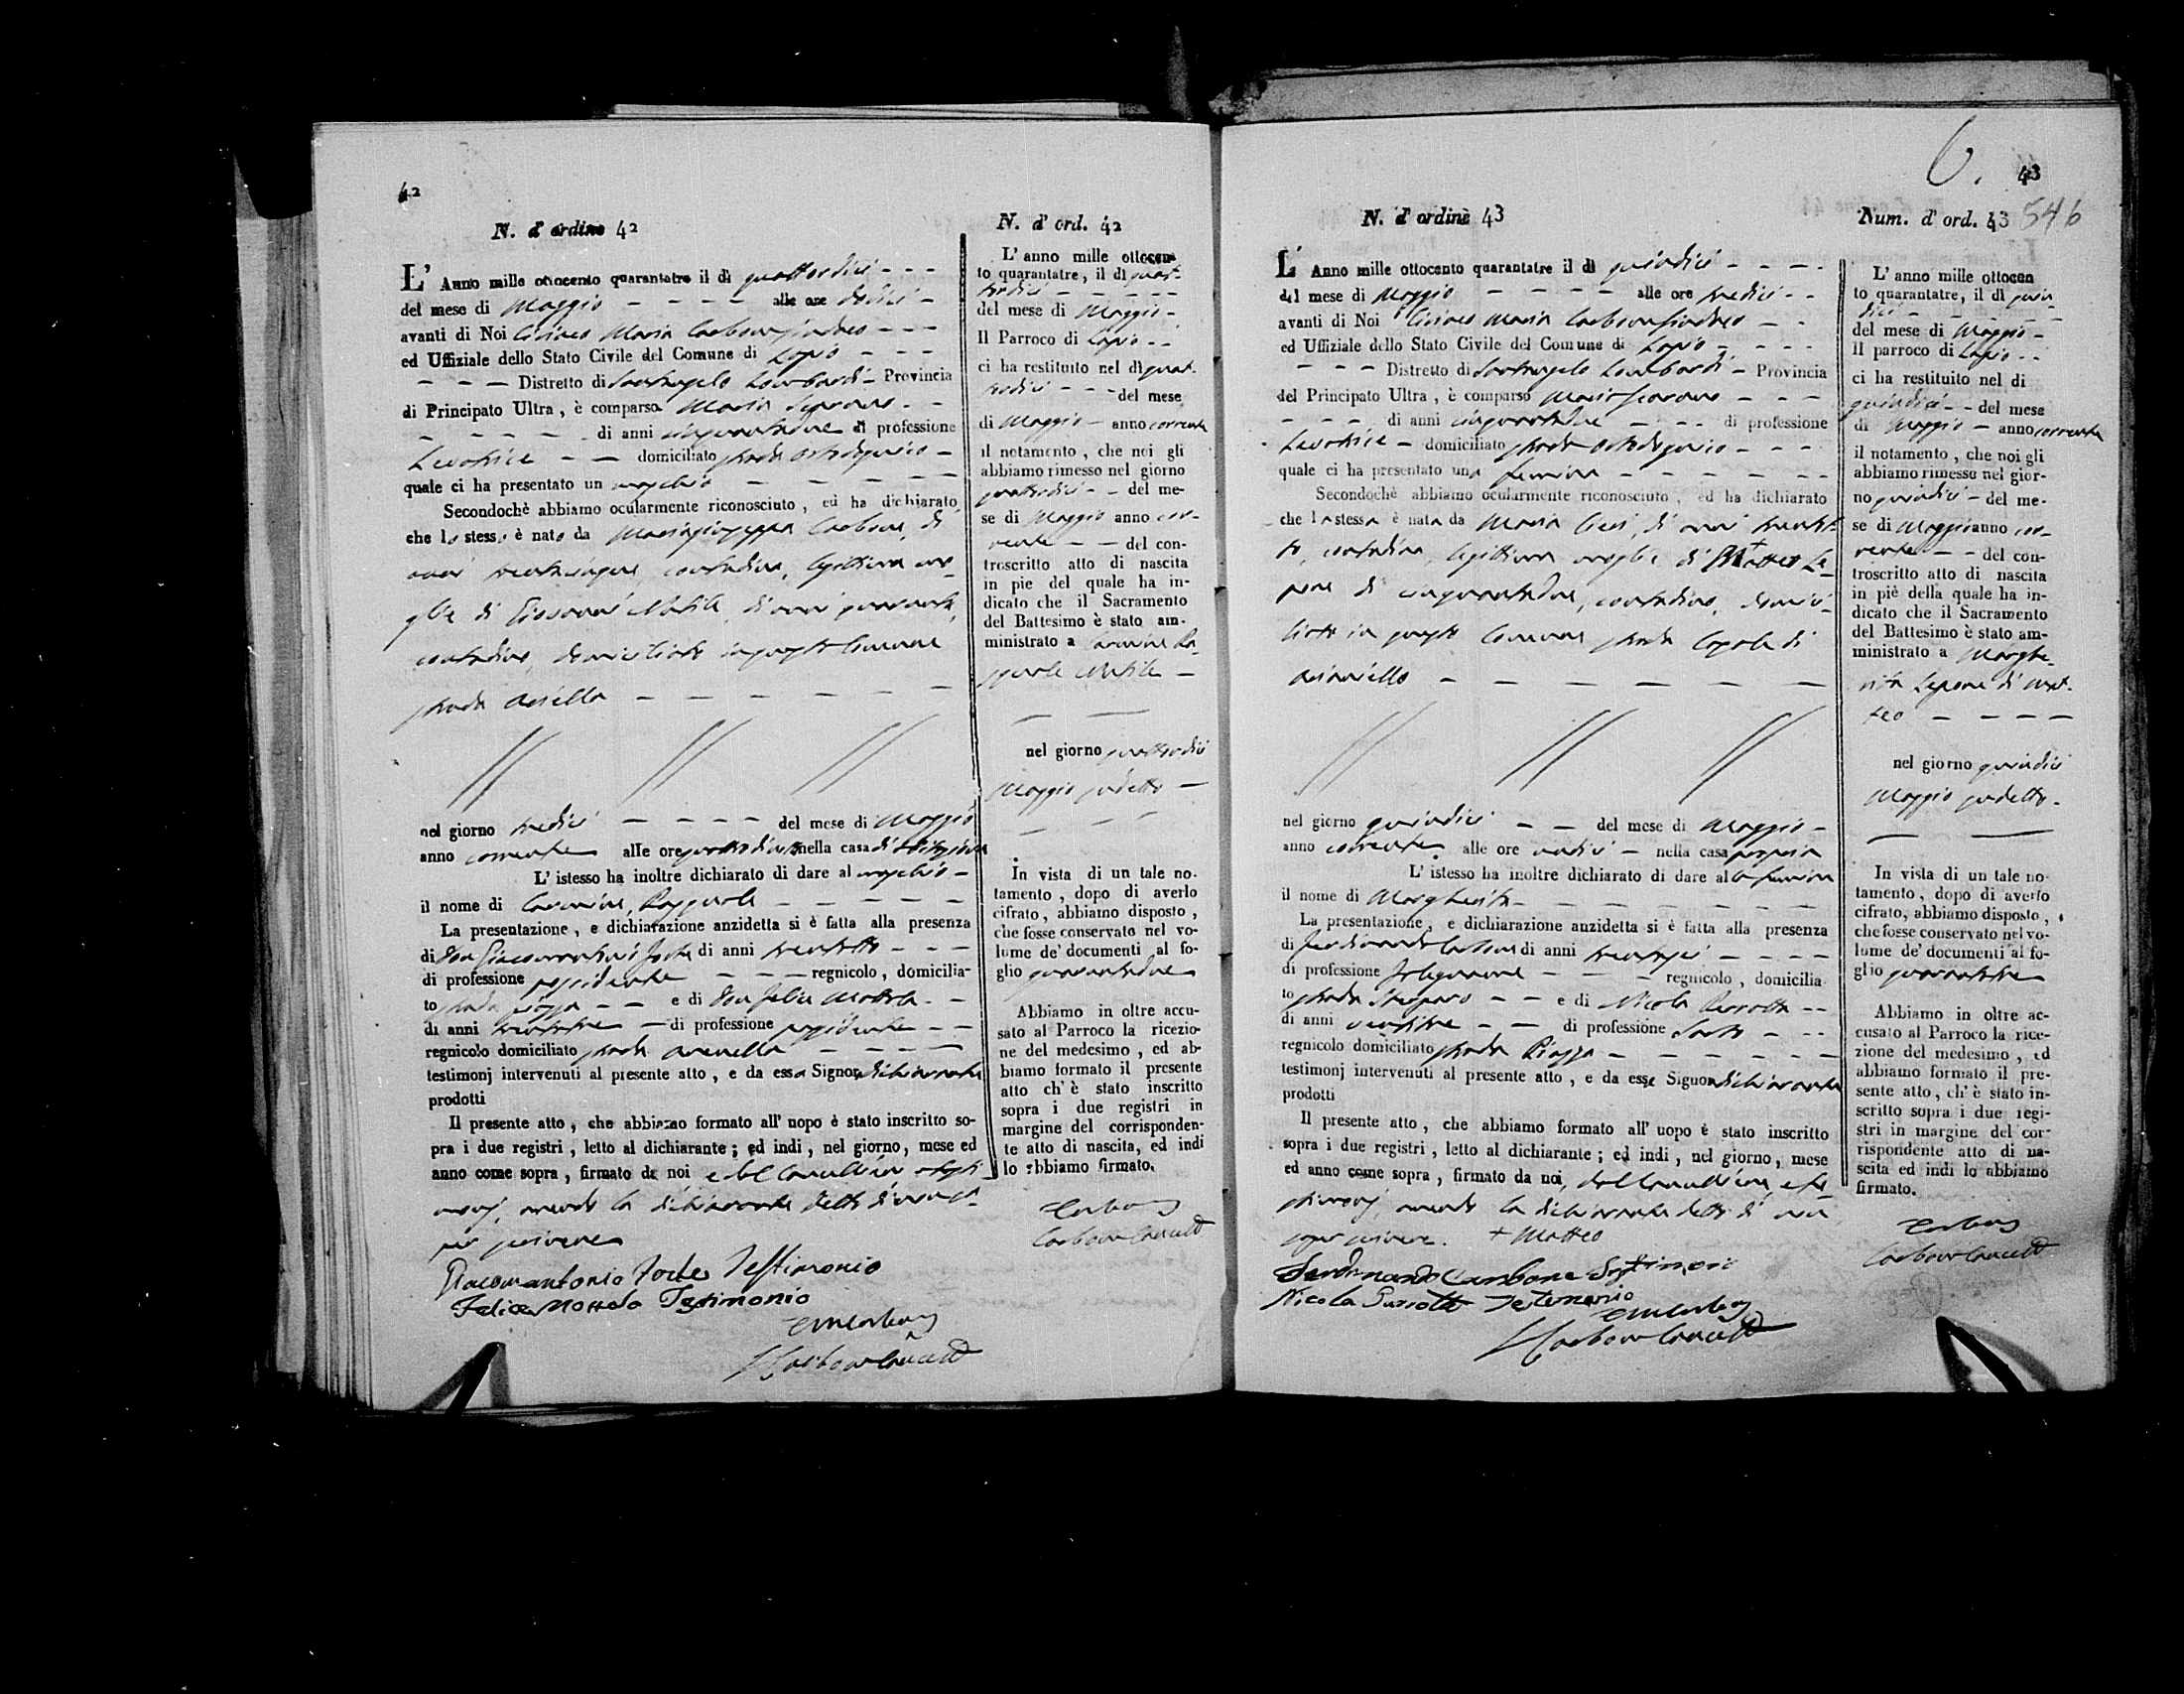 42
N. d' ordine 42
L' Anno mille ottocento quarantatre il di quattordici
del mese di Maggio alle ore dodici
avanti di Noi Ciriaco Maria Carbone Sindaco
ed Uffiziale dello Stato Civile del Comune di Lapio
Distretto di Santangelo Lombardi Provincia
di Principato Ultra, è comparsa Maria
di anni cinquantadue di professione
Levatrice domiciliato strada
quale ci ha presentato un maschio
Secondochè abbiamo ocularmente riconosciuto, ed ha dichiarato
che lo stesso è nato da Mariagiuseppa Carbone, di
anni trentacinque contadina, legittima mo-
glie di Giovanni di anni quaranta,
contadino, domiciliato in questo Comune
strada
nel giorno tredici del mese di Maggio
anno corrente alle ore nella casa di
L' istesso ha inoltre dichiarato di dare al maschio
il nome di Carmine, Pasquale
La presentazione, e dichiarazione anzidetta si è fatta alla presenza
di Don Giacomantonio Forte di anni trentotto
di professione possidente regnicolo, domicilia-
to strada piazza e di Don Felice Mottola
di anni trentatre di professione possidente
regnicolo domiciliato strada
testimonj intervenuti al presente atto, e da essa Signora dichiarante
prodotti
Il presente atto, che abbiamo formato all' uopo è stato inscritto so-
pra i due registri, letto al dichiarante; ed indi, nel giorno, mese ed
anno come sopra, firmato da noi e dal Cancelliere
avendo la dichiarante detto di non sa-
per scrivere
Giacomantonio Forte Testimonio
Felice Mottola Testimonio
N. d' ord. 42
L' anno mille ottocen
to quarantatre, il dì quat-
tordici
del mese di Maggio
Il Parroco di Lapio
ci ha restituito nel dì quat-
tordici del mese
di Maggio anno corrente
il notamento, che noi gli
abbiamo rimesso nel giorno
quattordici del me-
se di Maggio anno cor-
rente del con-
troscritto atto di nascita
in piè del quale ha in-
dicato che il Sacramento
del Battesimo è stato am-
ministrato a Carmine Pa-
squale
nel giorno quattordici
Maggio sudetto
In vista di un tale no-
tamento, dopo di averlo
cifrato, abbiamo disposto,
che fosse conservato nel vo-
lume de' documenti al fo-
glio quarantadue
Abbiamo in oltre accu-
sato al Parroco la ricezio-
ne del medesimo, ed ab-
biamo formato il presente
atto ch' è stato inscritto
sopra i due registri in
margine del corrisponden-
te atto di nascita, ed indi
lo abbiamo firmato.
6. 43
N. d' ordine 43
L' Anno mille ottocento quarantatre il di quindici
del mese di Maggio alle ore tredici
avanti di Noi Ciriaco Maria Carbone Sindaco
ed Uffiziale dello Stato Civile del Comune di Lapio
Distretto di Santangelo Lombardi Provincia
del Principato Ultra, è comparso Maria
di anni cinquantadue di professione
Levatrice domiciliato strada
quale ci ha presentato una femina
Secondochè abbiamo ocularmente riconosciuto, ed ha dichiarato
che la stessa è nata da Maria di anni trentot-
to, contadina, legittima moglie di Matteo Le-
pone di cinquantadue, contadino, domici-
liato in questo Comune strada
nel giorno quindici del mese di Maggio
anno corrente alle ore undici nella casa propria
L' istesso ha inoltre dichiarato di dare alla femina
il nome di Margherita
La presentazione, e dichiarazione anzidetta si è fatta alla presenza
di Ferdinando Carbone di anni trentasei
di professione falegname regnicolo, domicilia-
to strada e di Nicola
di anni ventitre di professione Sarto
regnicolo domiciliato strada Piazza
testimonj intervenuti al presente atto, e da esse Signora dichiarante
prodotti
Il presente atto, che abbiamo formato all' uopo è stato inscritto
sopra i due registri, letto al dichiarante; ed indi, nel giorno, mese
ed anno come sopra, firmato da noi, dal Cancelliere, e te-
stimonj, avendo la dichiarante detto di non
saper scrivere. + Matteo
Ferdinando Carbone Testimonio
Nicola Testimonio
Num. d' ord. 43 546
L' anno mille ottocen
to quarantatre, il dì quin-
dici
del mese di Maggio
Il parroco di Lapio
ci ha restituito nel di
quindici del mese
di Maggio anno corrente
il notamento, che noi gli
abbiamo rimesso nel gior-
no quindici del me-
se di Maggio anno cor-
rente del con-
troscritto atto di nascita
in piè della quale ha in-
dicato che il Sacramento
del Battesimo è stato am-
ministrato a Marghe-
rita Lepone di Mat-
teo
nel giorno quindici
Maggio sudetto
In vista di un tale no-
tamento, dopo di averlo
cifrato, abbiamo disposto,
che fosse conservato nel vo-
lume de' documenti al fo-
glio quarantatre
Abbiamo in oltre ac-
cusato al Parroco la rice-
zione del medesimo, ed
abbiamo formato il pre-
sente atto, ch' è stato in-
scritto sopra i due regi-
stri in margine del cor-
rispondente atto di na-
scita ed indi lo abbiamo
firmato.